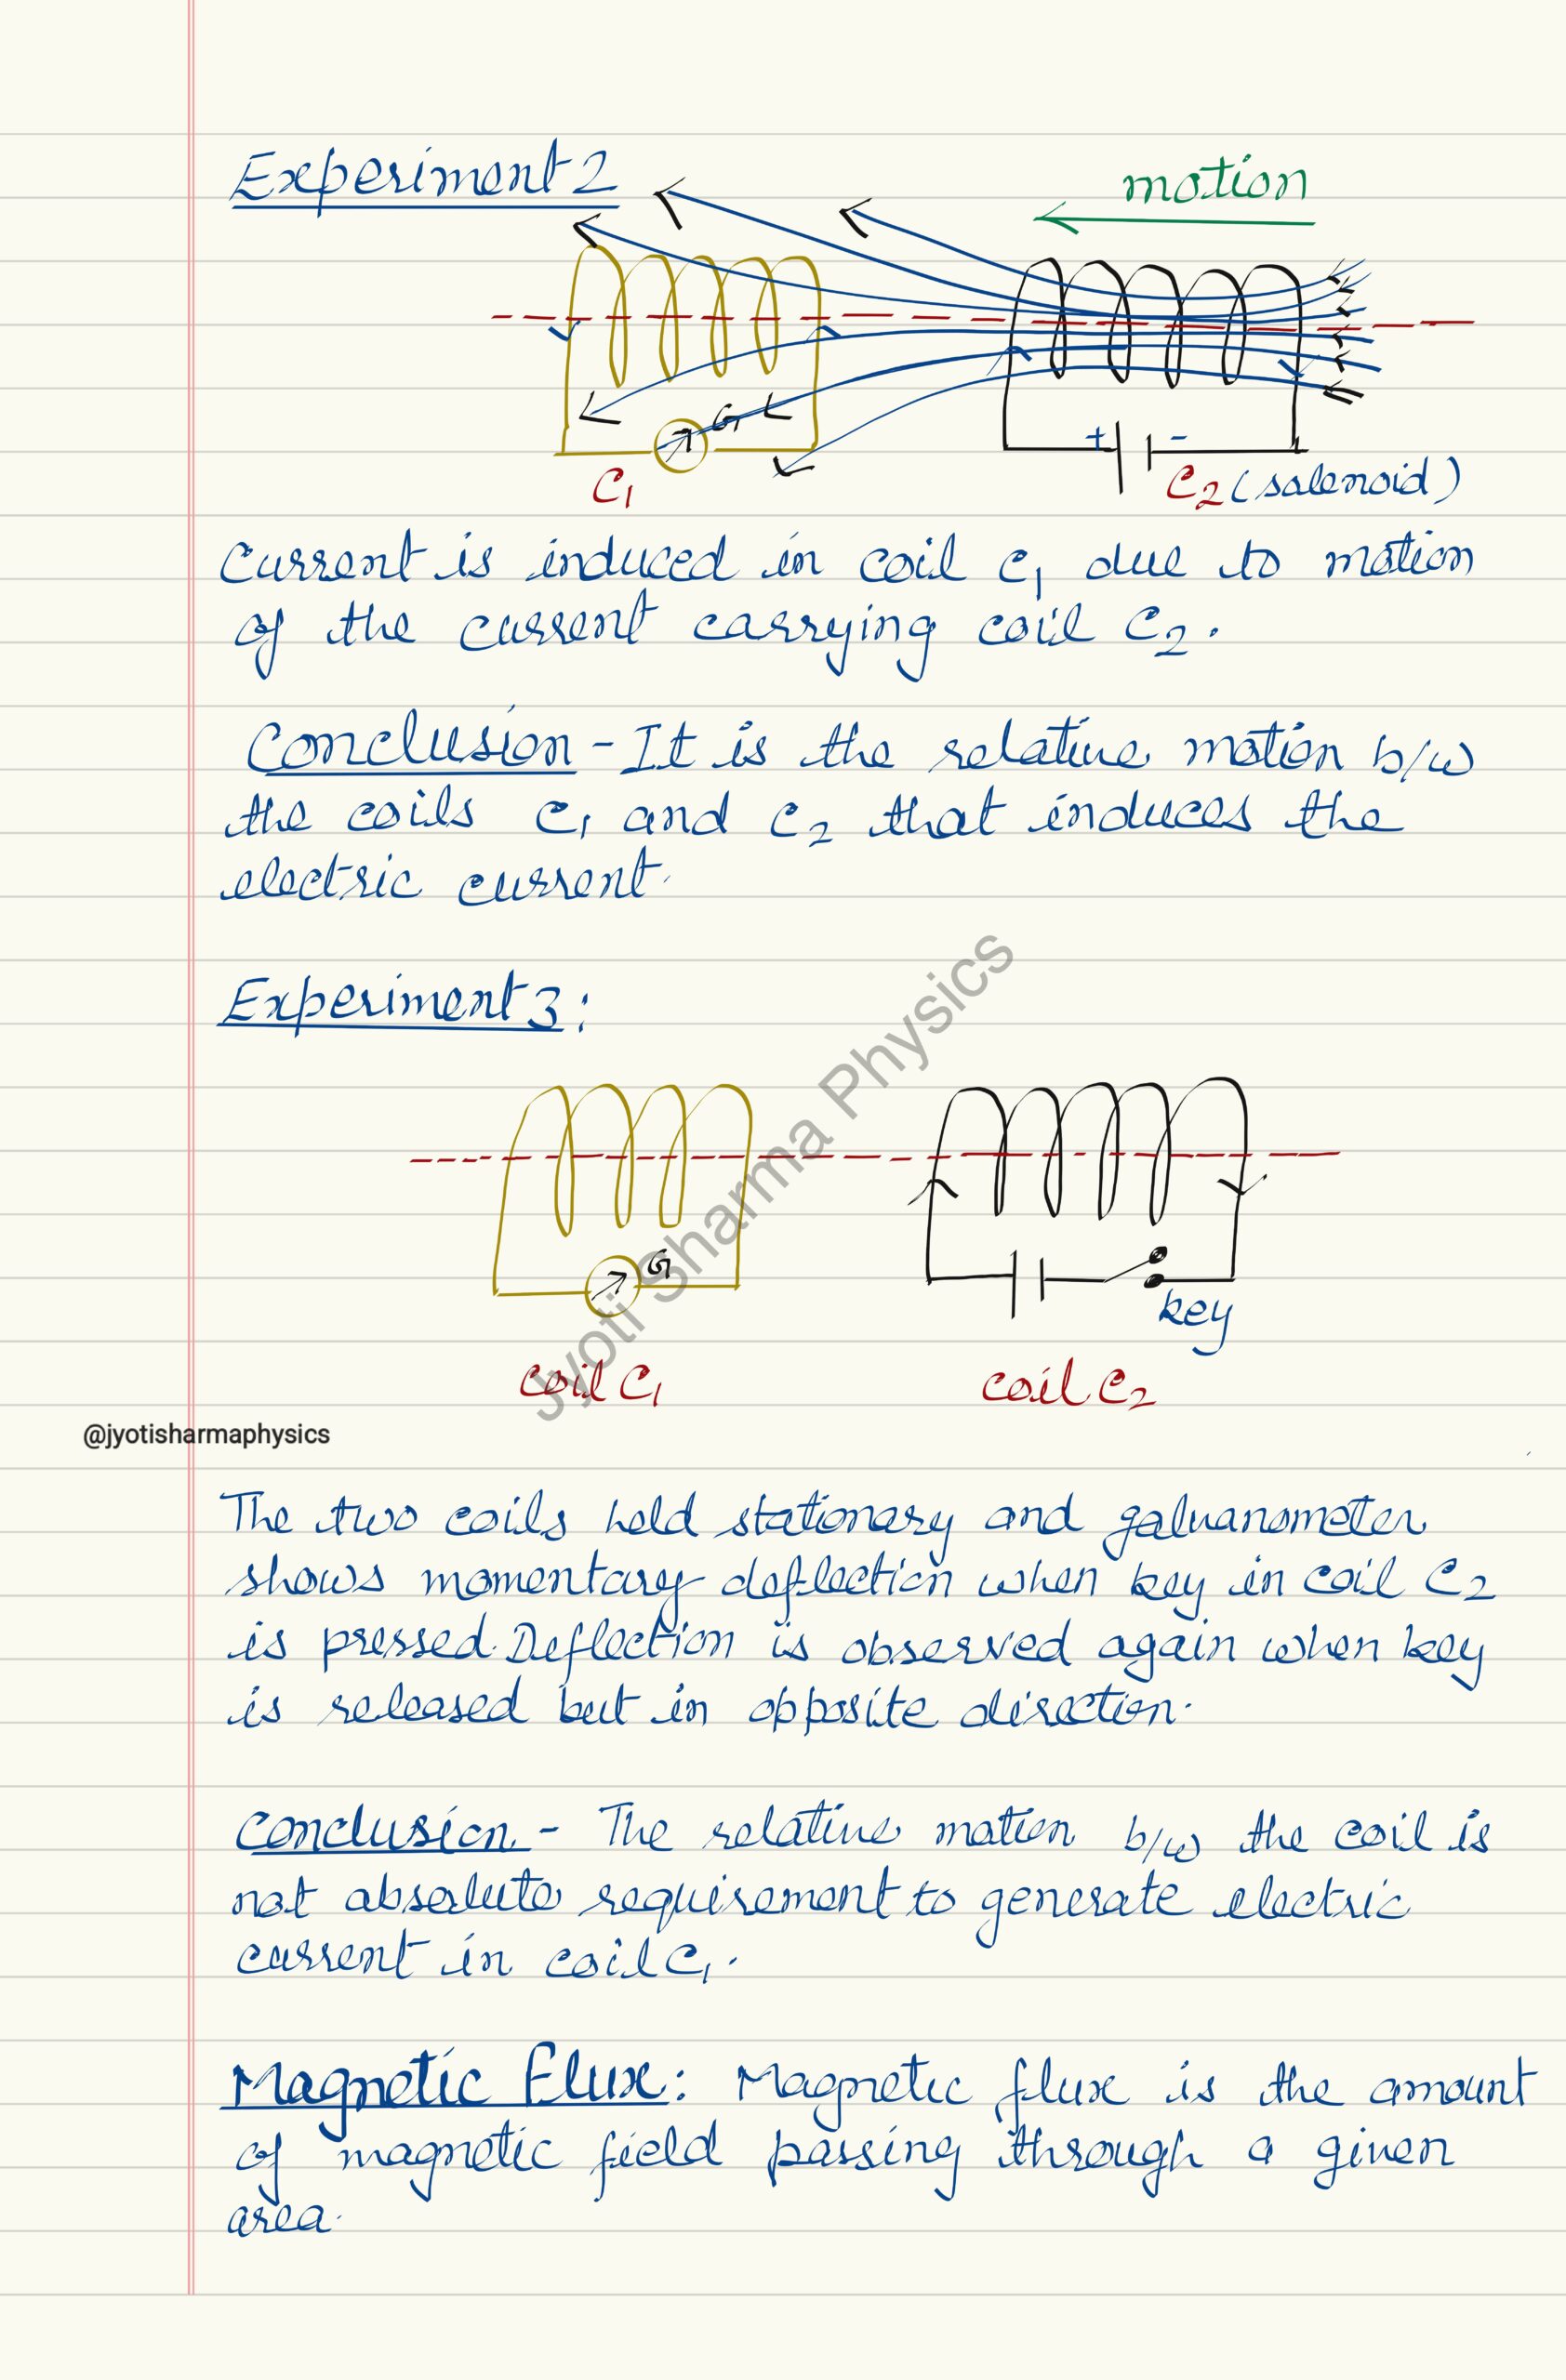 Experiment 2
motion
G
+ -
C1
C2 (salenoid)
Current is induced in coil C1 due to motion
of the current carrying coil C2.
Conclusion - It is the relative motion b/w
the coils C1 and C2 that induces the
electric current.
Experiment 3:
G
key
coil C1
coil C2
Jyoti Sharma Physics
@jyotisharmaphysics
The two coils held stationary and galvanometer
shows momentary deflection when key in coil C2
is pressed. Deflection is observed again when key
is released but in opposite direction.
Conclusion - The relative motion b/w the coil is
not absolute requirement to generate electric
current in coil C1.
Magnetic Flux: Magnetic flux is the amount
of magnetic field passing through a given
area.